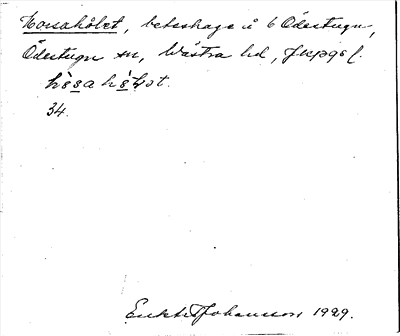 Horsahålet, beteshage å 6 Ödestugu,
Ödestugu sn, Västra hd, Jkpgs l.
34.
Erik Johansson 1929.